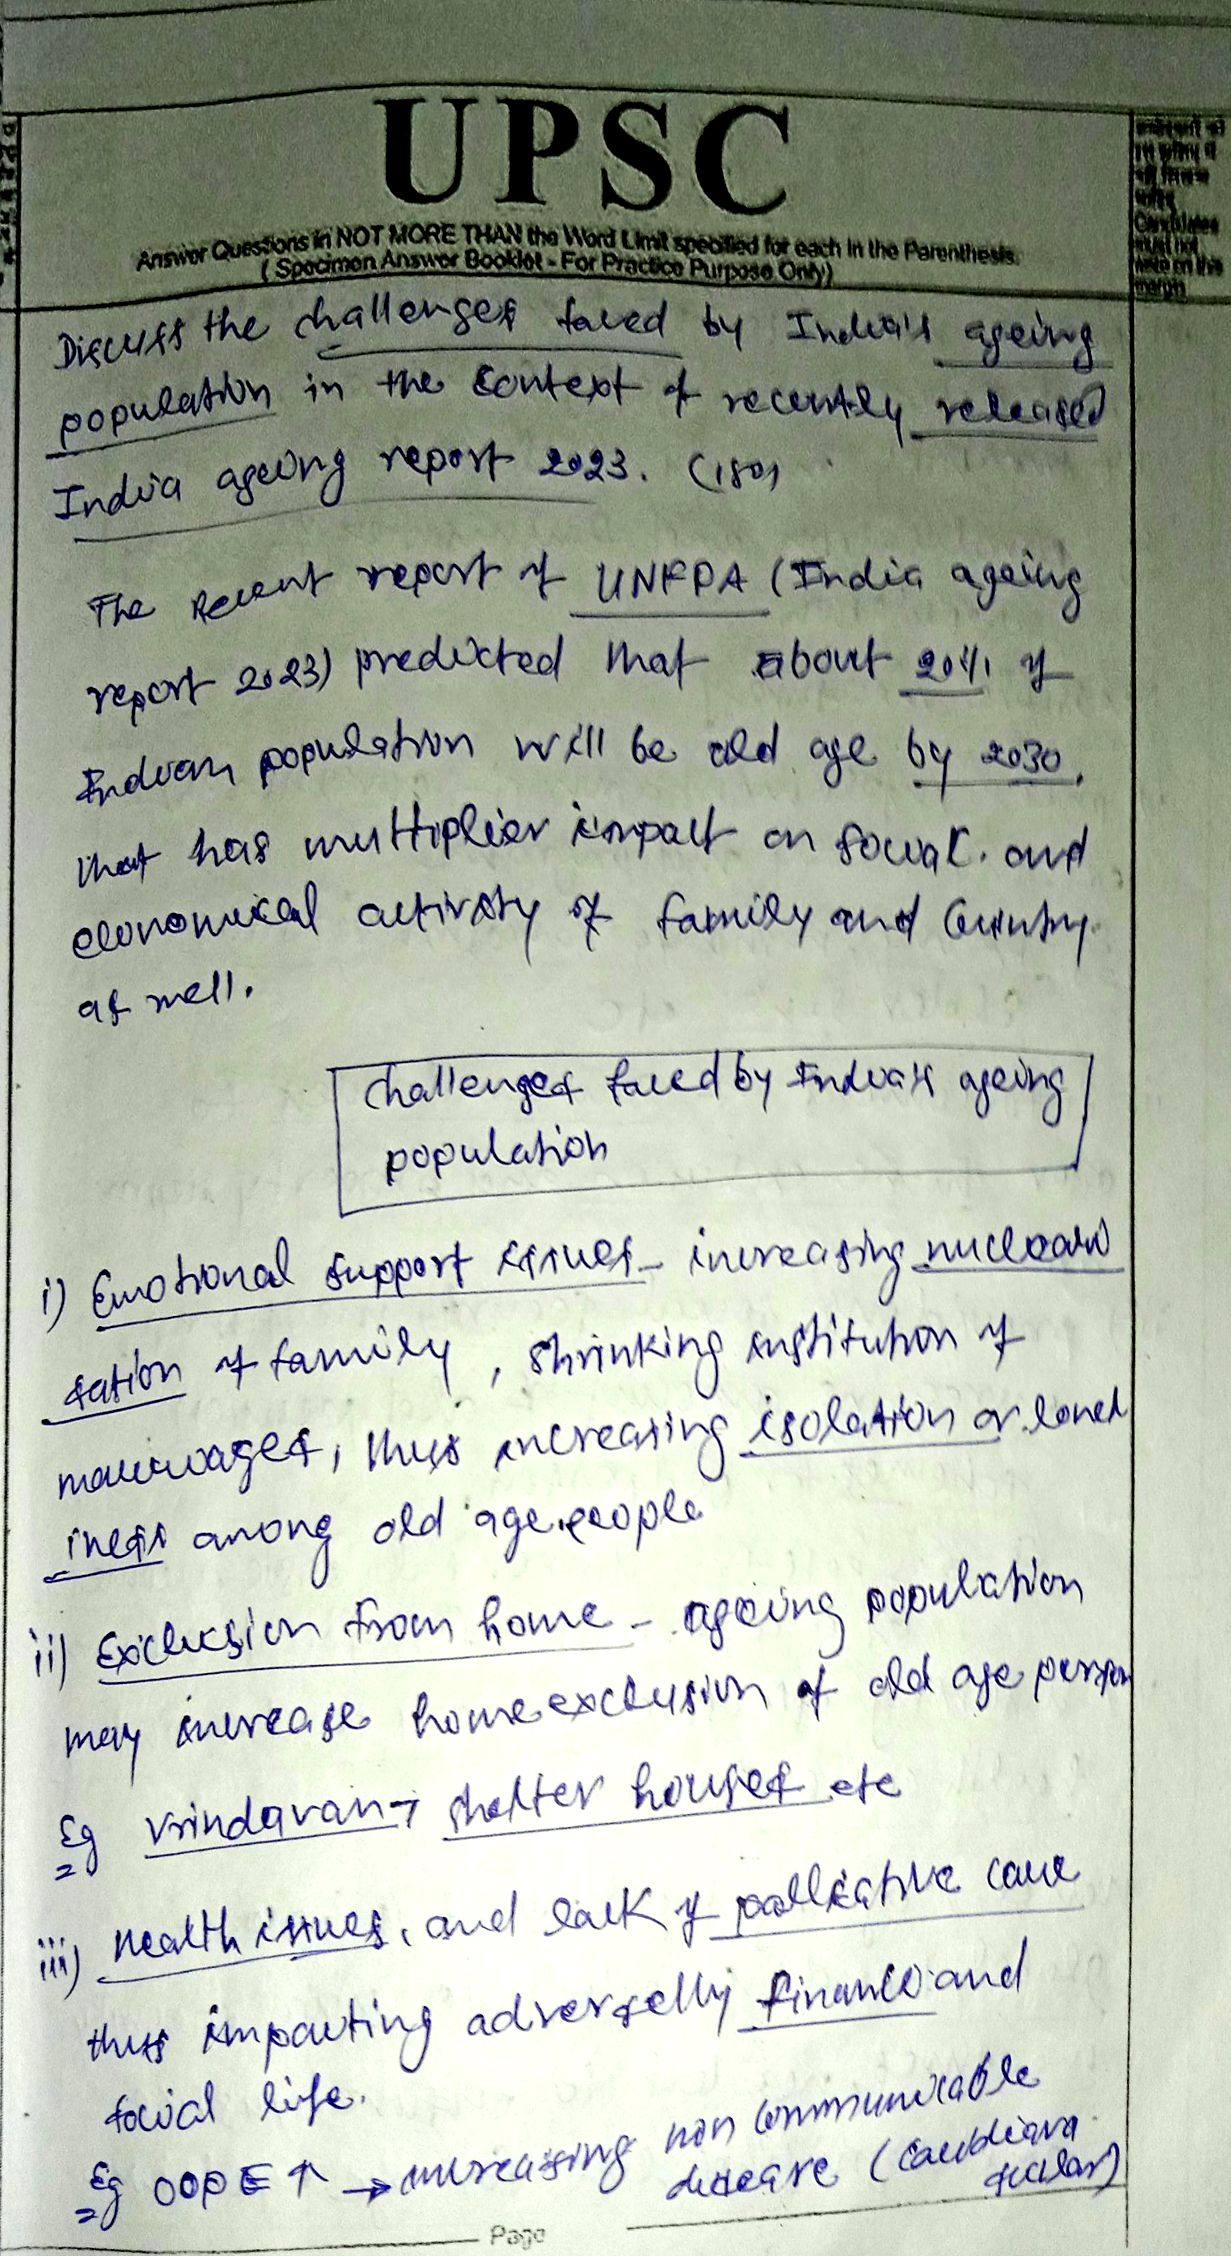 UPSC
Answer Questions in NOT MORE THAN the Word Limit specified for each in the Parenthesis.
( Specimen Answer Booklet - For Practice Purpose Only)
Candidates
must not
write on this
margin
Discuss the challenges faced by India's ageing
population in the context of recently released
India ageing report 2023. (150)
The Recent report of UNFPA (India ageing
report 2023) predicted that about 20%. of
Indian population will be old age by 2030,
that has multiplier impact on social. and
economical activity of family and Country
as well.
Challenges faced by India's ageing
population
i) Emotional support issues - increasing nucleari
sation of family, shrinking institution of
marriages, thus increasing isolation or lonel
iness among old age people
ii) Exclusion from home - ageing population
may increase home exclusion of old age person
Eg Vrindavan → shelter houses etc
iii) Health issues, and lack of palliative care
thus impacting adverselly finance and
social life.
Eg OOPE ↑ → increasing non communicable
disease (Cardiova
scular)
Page